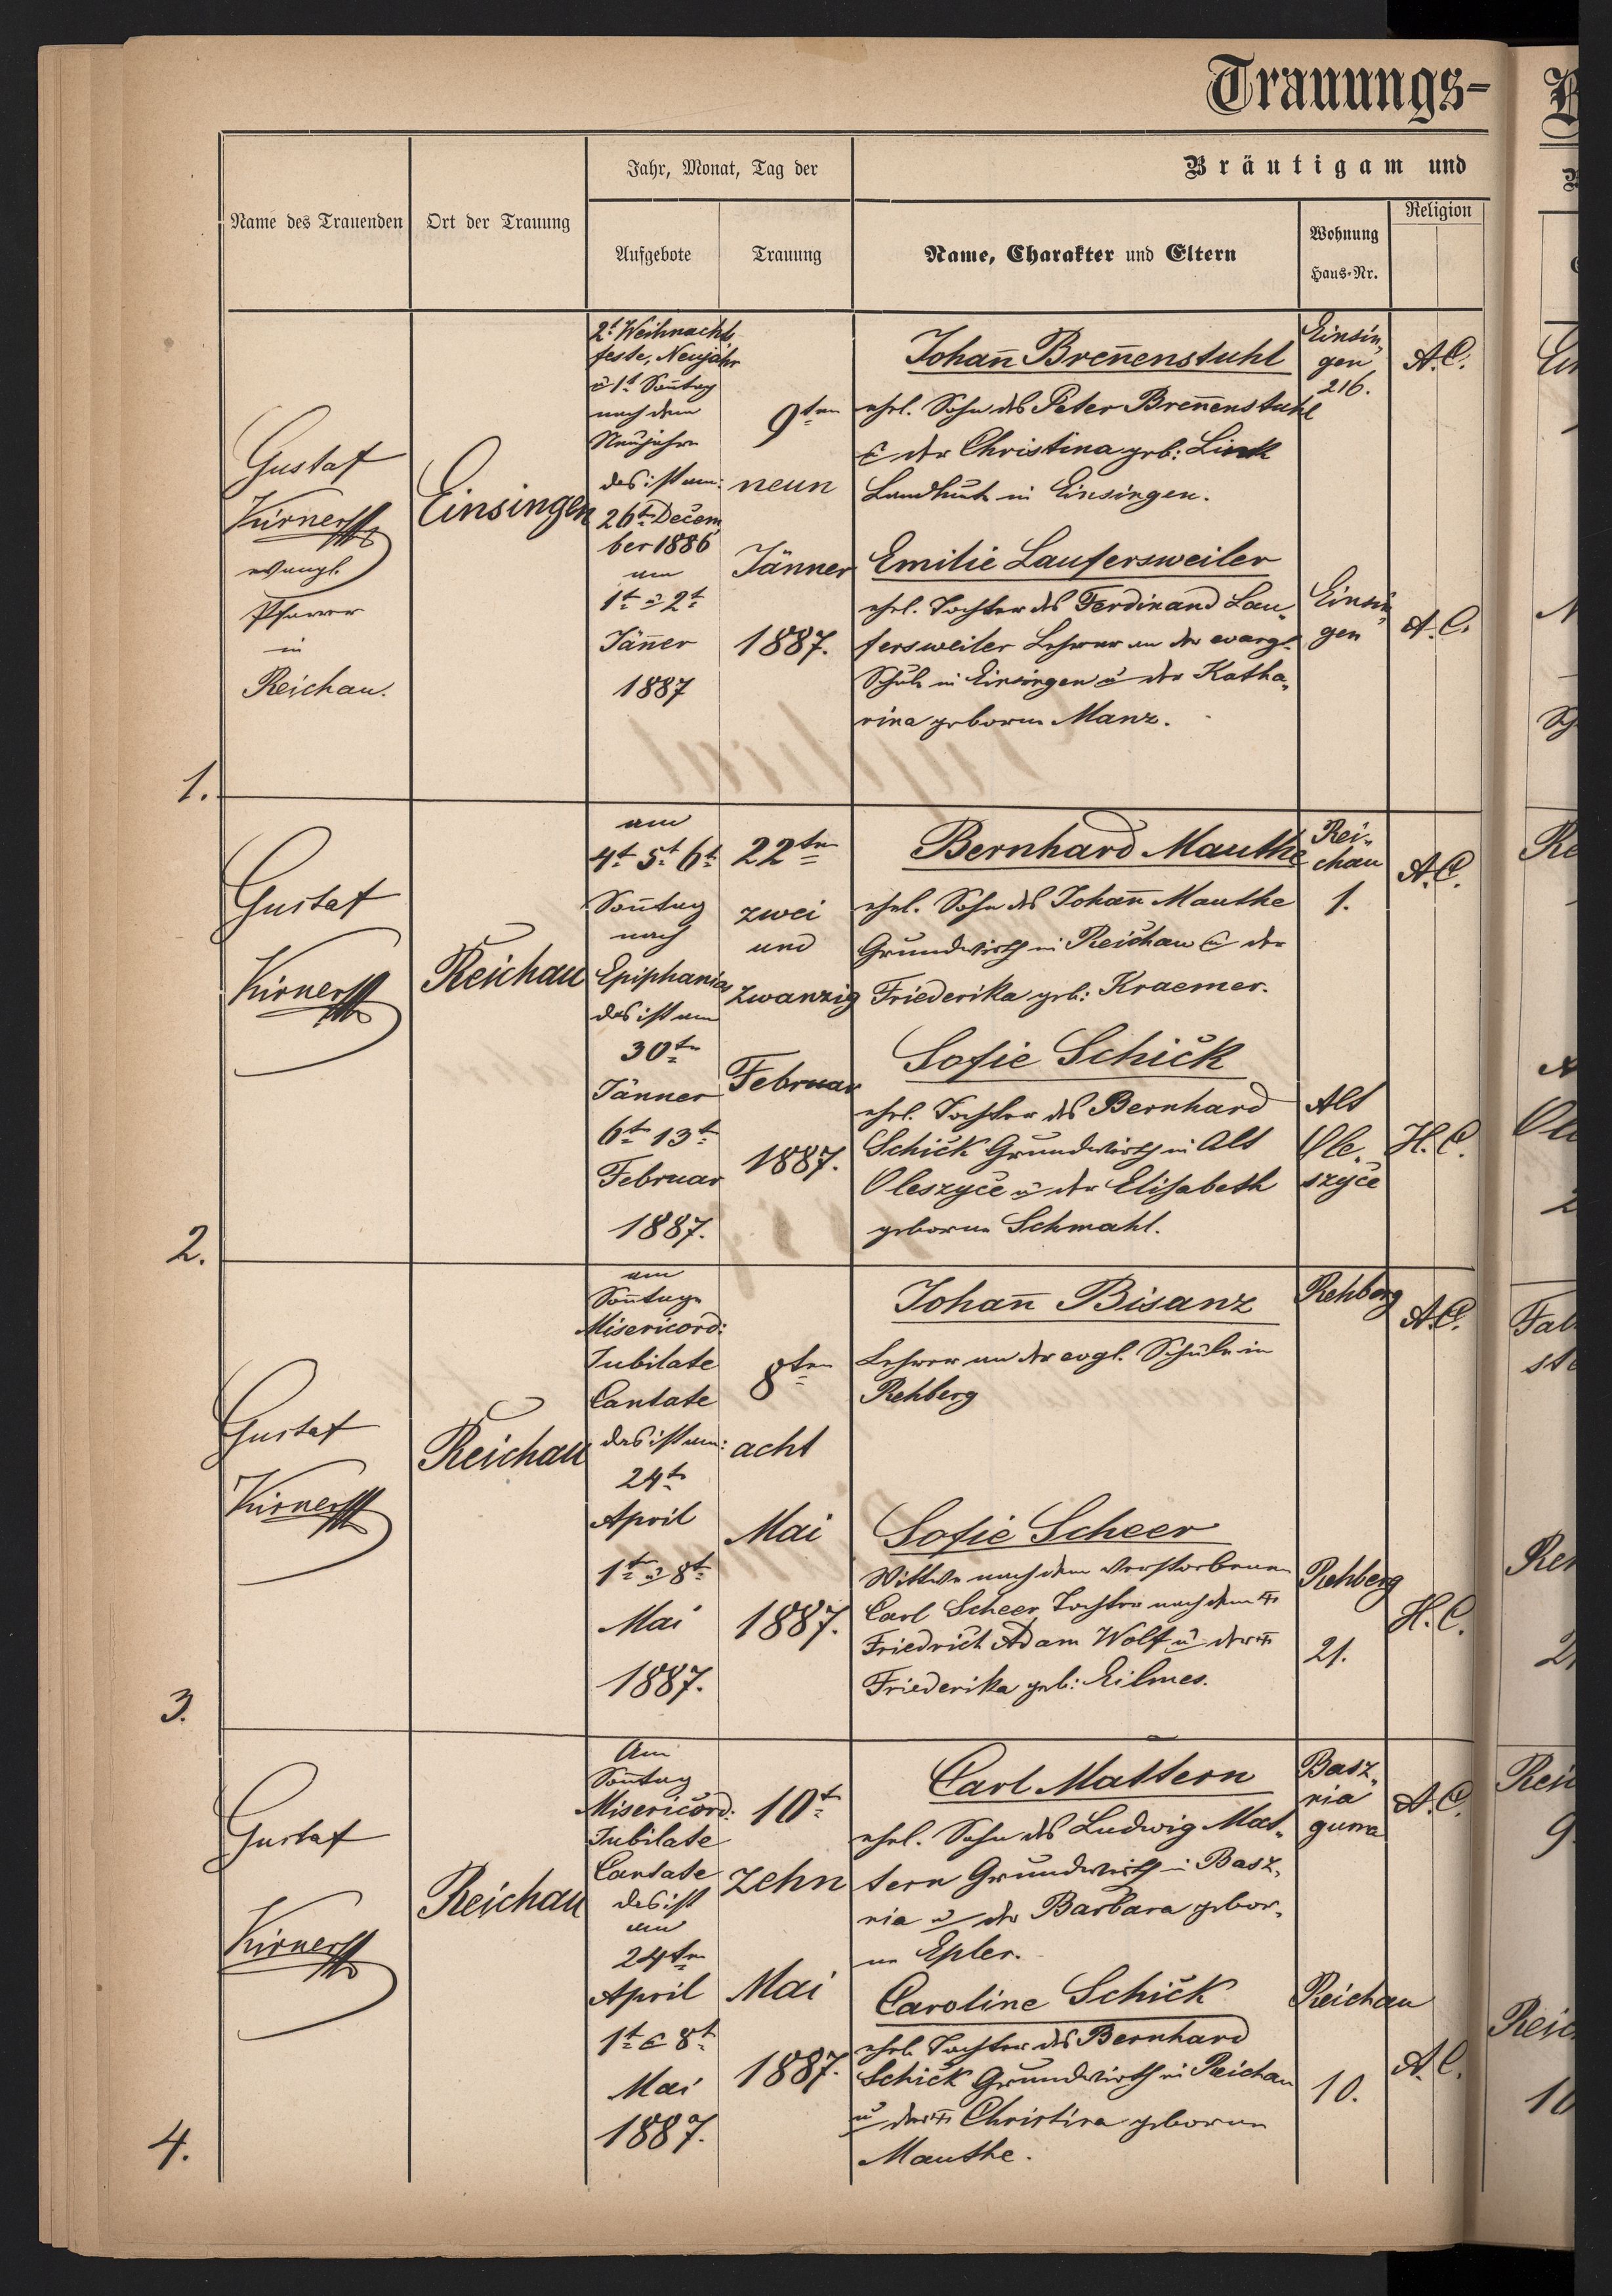 Trauungs-
Jahr, Monat, Tag der
Bräutigam und
Name des Trauenden
Ort der Trauung
Aufgebote
Trauung
Name, Charakter und Eltern
Wohnung
Haus-Nr.
Religion
1.
Gustaf
Kirner
evangl.
Pfarrer
in
Reichau.
Einsingen
2t Weihnachts
feste, Neujahr
u 1t Soñtag
nach dem
Neujahr
das ist am:
26t Decem
ber 1886
am
1t u 2t
Jäñer
1887
9ten
neun
Jänner
1887.
Johañ Breñenstuhl
ehel. Sohn des Peter Breñenstuhl
u der Christina geb: Link
Landleute in Einsingen.
Emilie Laufersweiler
ehel. Tochter des Ferdinand Lau-
fersweiler Lehrer an der evangl.
Schule in Einsingen u der Katha-
rina geborne Manz.
Einsin-
gen
216.
A.C.
Einsin-
gen
A.C.
2.
Gustaf
Kirner
Reichau
am
4t 5t 6t
Soñtag
nach
Epiphanias
das ist am
30ten
Jänner
6ten 13t
Februar
1887.
22ten
zwei
und
zwanzig
Februar
1887.
Bernhard Mauthe
ehel. Sohn des Johañ Mauthe
Grundwirth in Reichau u der
Friederika geb: Kraemer.
Sofie Schick
ehel. Tochter des Bernhard
Schick Grundwirth in Alt
Oleszyce u der Elisabeth
geborne Schmahl.
Rei-
chau
1.
A.C.
Alt
Ole-
szyce
H.C.
3.
Gustaf
Kirner
Reichau
am
Soñtage
Misericord:
Jubilate
Cantate
das ist am:
24t
April
1t u 8t
Mai
1887.
8ten
acht
Mai
1887.
Johañ Bisanz
Lehrer an der evgl. Schule in
Rehberg
Sofie Scheer
Wittwe nach dem verstorbenen
Carl Scheer Tochter nach dem
Friedrich Adam Wolf u der
Friederika geb: Eilmes.
Rehberg
A.C.
Rehberg
21.
H.C.
4.
Gustaf
Kirner
Reichau
Am
Soñtag
Misericord:
Jubilate
Cantate
das ist
am
24ten
April
1t u 8t
Mai
1887.
10t
zehn
Mai
1887.
Carl Mattern
ehel. Sohn des Ludwig Mat-
tern Grundwirth in Basz-
nia u der Barbara gebor-
ne Epler.
Caroline Schick
ehel. Tochter des Bernhard
Schick Grundwirth in Reichau
u der Christina geborne
Mauthe.
Basz-
nia
A.C.
Reichau
10.
A.C.